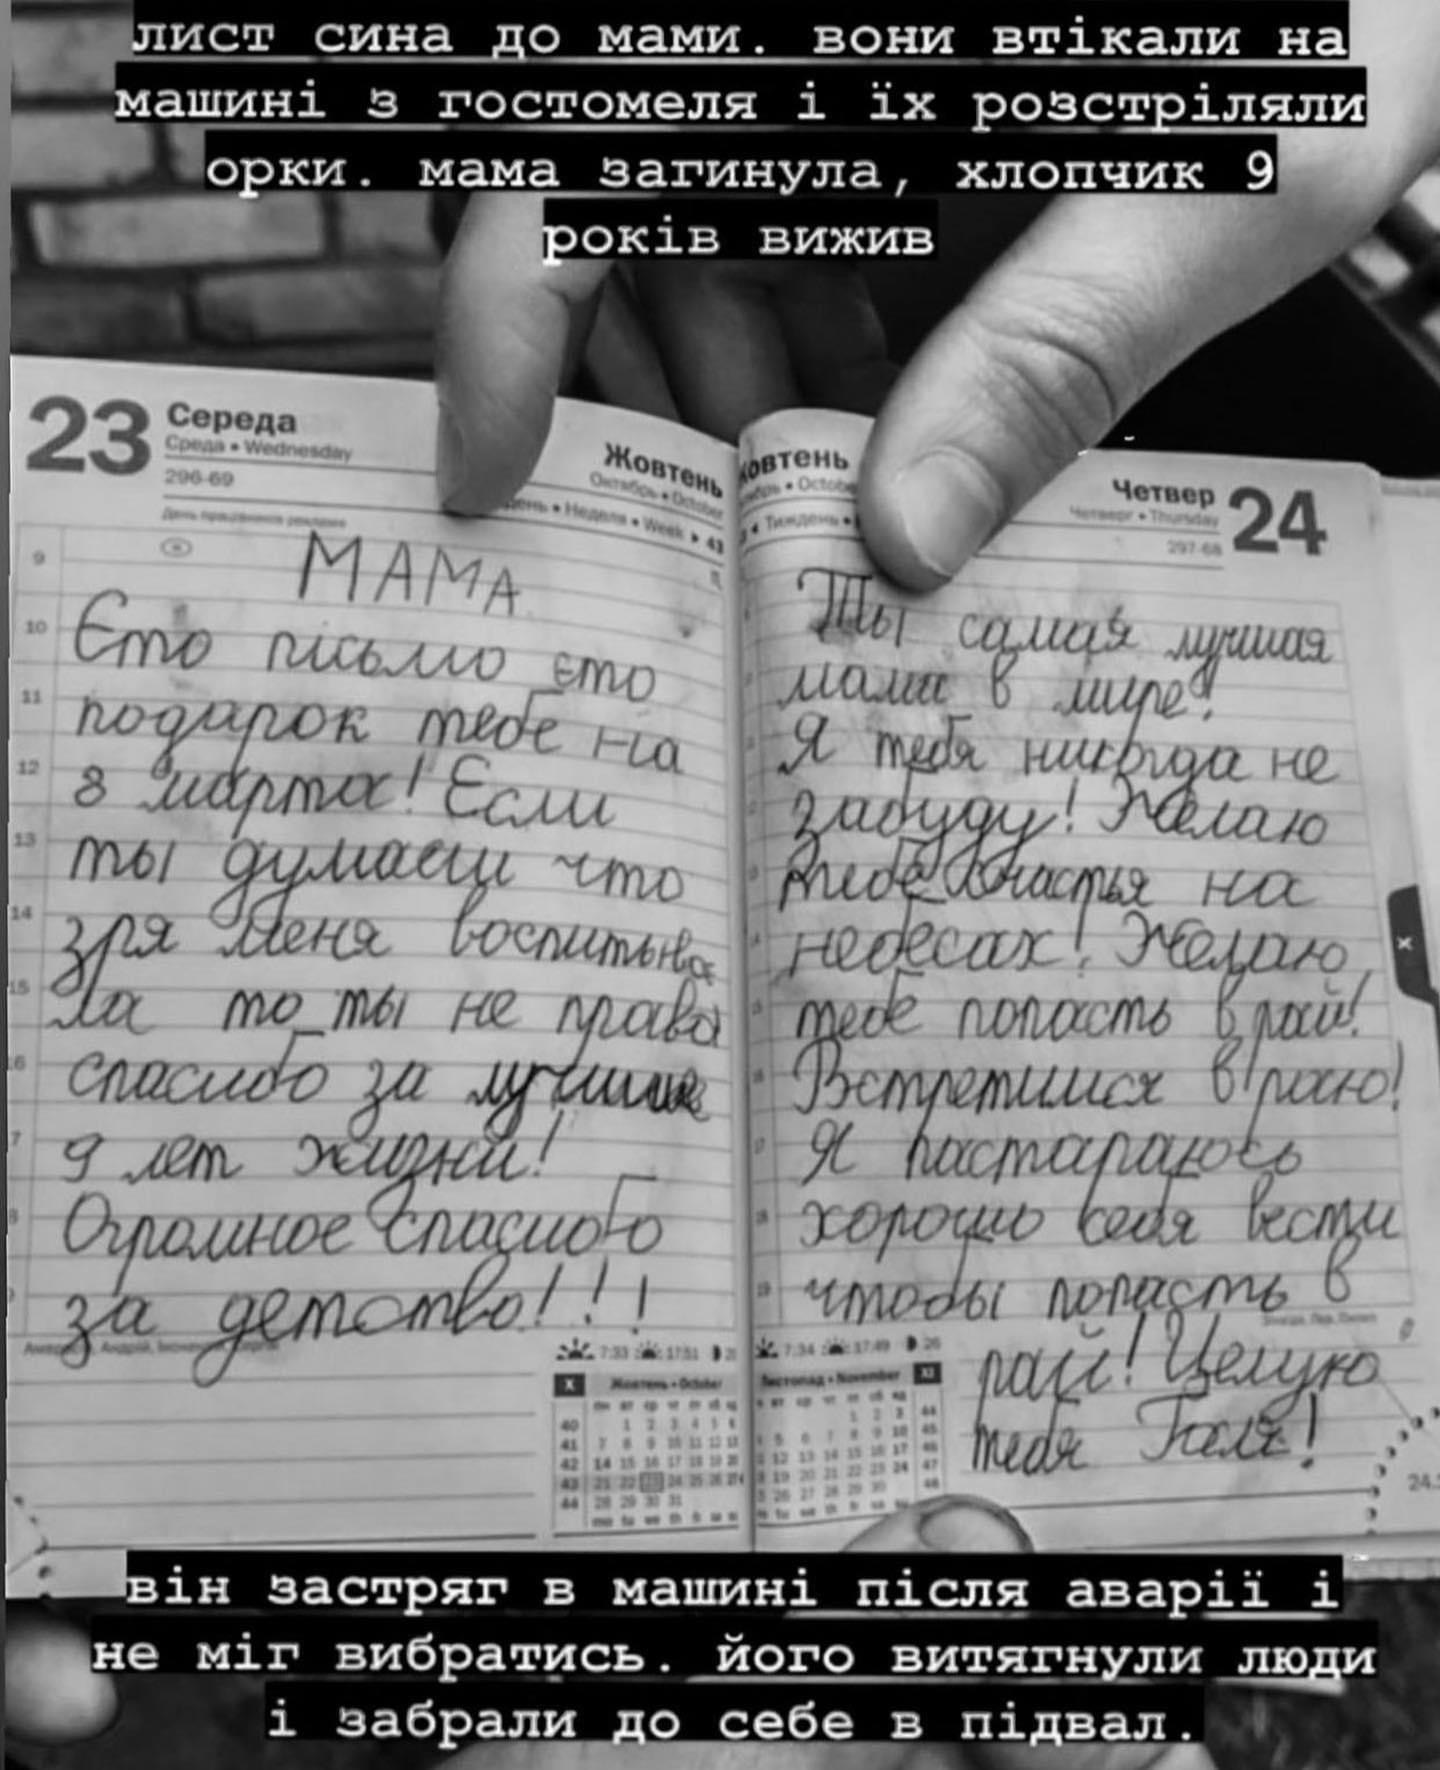 лист сина до мами. вони втікали на
машині з гостомеля і їх розстріляли
орки. мама загинула, хлопчик 9
років вижив
23 Середа
Среда • Wednesday
296-69
Жовтень
Октябрь • October
Неделя • Week ▸ 43
МАМА
Єто пісьмо єто
подарок тебе на
8 марта! Єсли
ты думаеш что
зря меня воспитыва
ла то ты не права
спасибо за лучшие
9 лет жизни!
Огромное спасибо
за детство!!!
7:33 17:51
X Жовтень • October
Четвер 24
Четверг • Thursday
297-68
Ты самая лучшая
мама в мире!
Я тебя никогда не
забуду! Желаю
тебе счастья на
небесах! Желаю
тебе попасть в рай!
Встретимся в раю!
Я пастараюсь
хорошо себя вести
чтобы попасть в
рай! Целую
тебя Галя!
7:34 17:49 26
Листопад • November XI
він застряг в машині після аварії і
не міг вибратись. його витягнули люди
і забрали до себе в підвал.